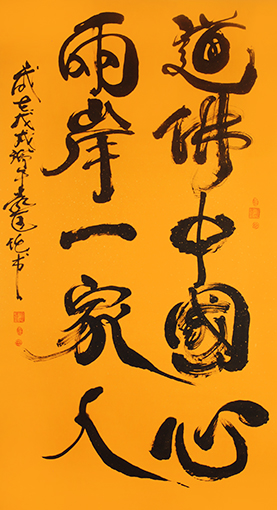 道佛中國心
兩岸一家人
歲在戊戌